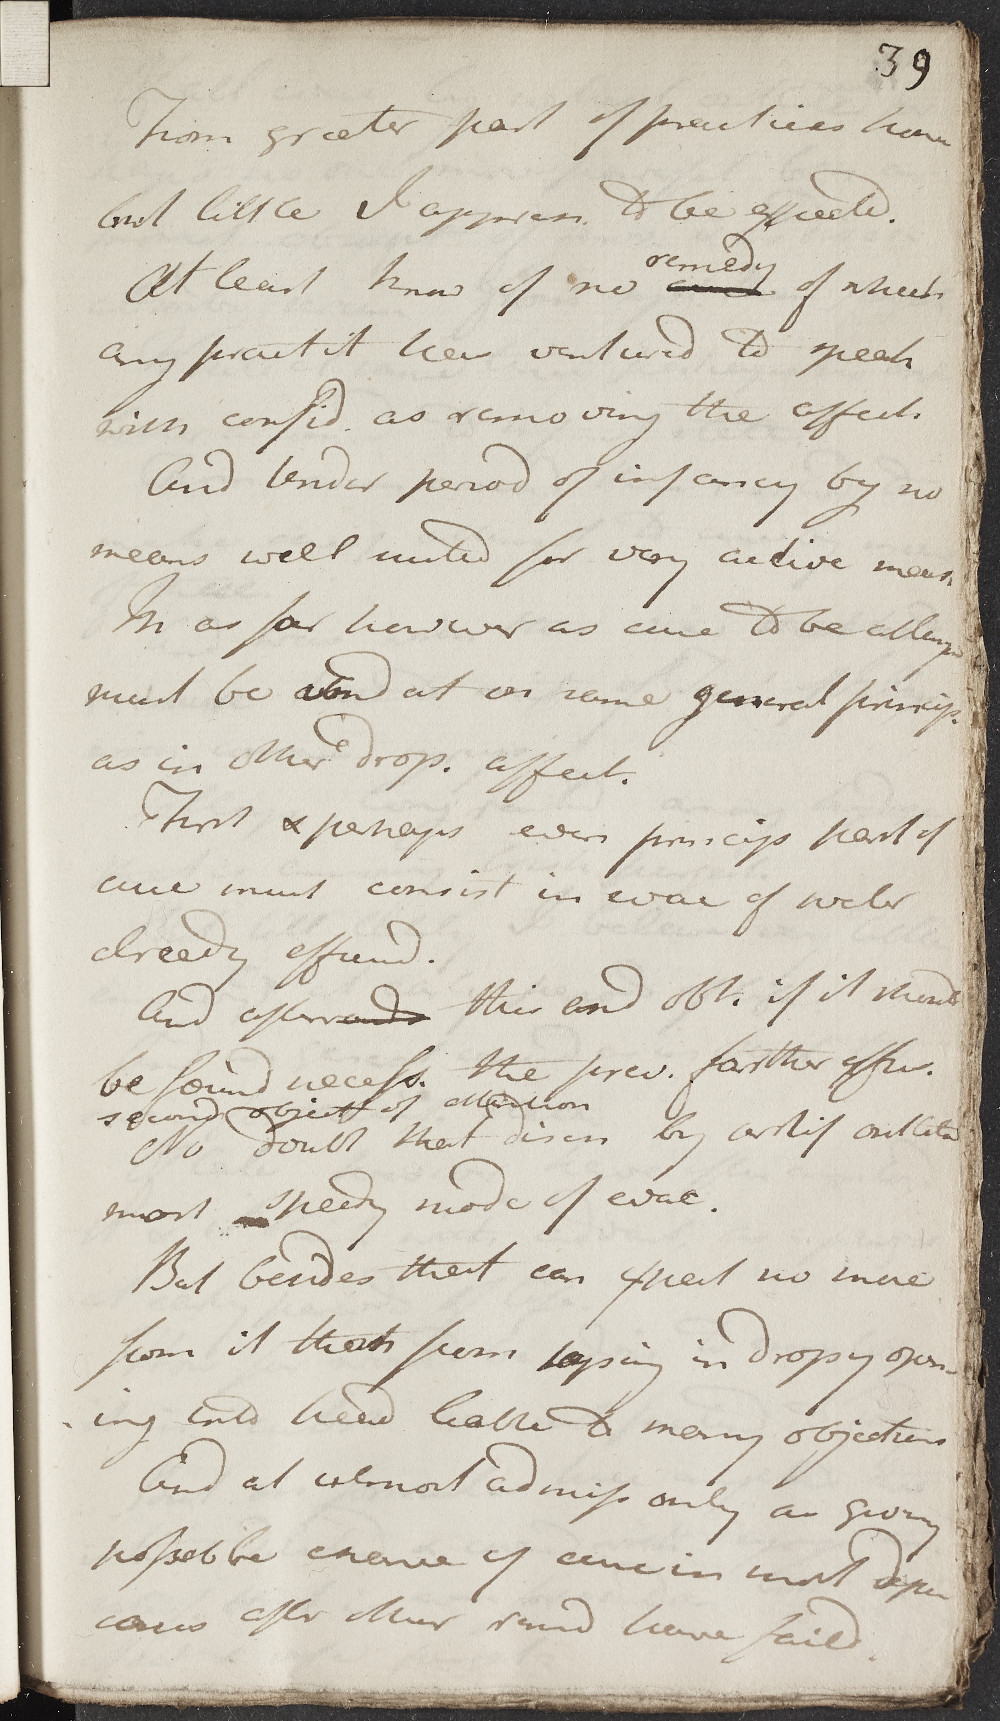 39
From greater part of practices however
but little I apprehen. to be expected.
At least know of no remedy cure of which
any practit has ventured to speak
with confid. as removing the affect.
And tender period of infancy by no
means well suited for very active meas.
In as far however as cure to be attemp
must be aimd at on same general princip.
as in other drop. affect.
First & perhaps even princip part of
cure must consist in evac of water
already effused.
And afterwards this end obt. if it should
be found necess. the prev. farther effus.
second object of attention
No doubt that disch by artif outlets
most speedy mode of evac.
But besides that can expect no more
from it than from taping in dropsy open
ing into head liable to many objections
And at utmost admiss only as giving
possible chance of cure in most desper
cases after other remed have faild.